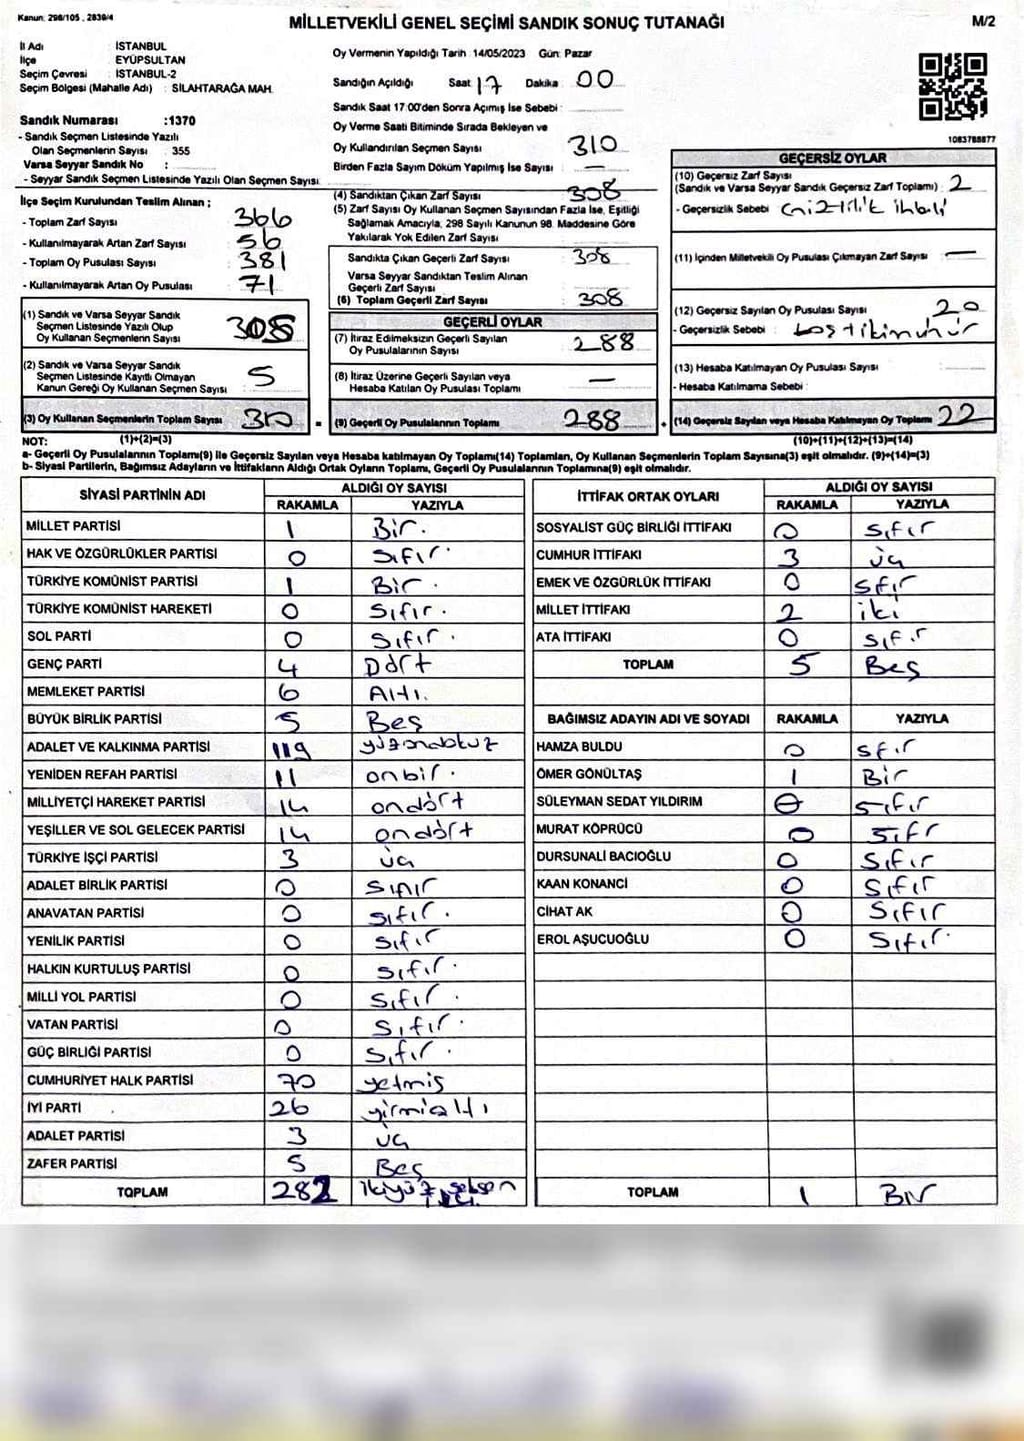 Kanun: 298/105 , 2839/4
MİLLETVEKİLİ GENEL SEÇİMİ SANDIK SONUÇ TUTANAĞI
M/2
İl Adı : İSTANBUL
İlçe : EYÜPSULTAN
Seçim Çevresi : İSTANBUL-2
Seçim Bölgesi (Mahalle Adı) : SİLAHTARAĞA MAH.
Sandık Numarası :1370
- Sandık Seçmen Listesinde Yazılı
Olan Seçmenlerin Sayısı : 355
Varsa Seyyar Sandık No :
- Seyyar Sandık Seçmen Listesinde Yazılı Olan Seçmen Sayısı:
İlçe Seçim Kurulundan Teslim Alınan ;
- Toplam Zarf Sayısı : 366
- Kullanılmayarak Artan Zarf Sayısı : 56
- Toplam Oy Pusulası Sayısı : 381
- Kullanılmayarak Artan Oy Pusulası : 71
(1) Sandık ve Varsa Seyyar Sandık
Seçmen Listesinde Yazılı Olup
Oy Kullanan Seçmenlerin Sayısı : 305
(2) Sandık ve Varsa Seyyar Sandık
Seçmen Listesinde Kayıtlı Olmayan
Kanun Gereği Oy Kullanan Seçmen Sayısı : 5
(3) Oy Kullanan Seçmenlerin Toplam Sayısı : 310
Oy Vermenin Yapıldığı Tarih :14/05/2023 Gün: Pazar
Sandığın Açıldığı Saat: 17 Dakika : 00
Sandık Saat 17:00'den Sonra Açımış İse Sebebi :
Oy Verme Saati Bitiminde Sırada Bekleyen ve
Oy Kullandırılan Seçmen Sayısı : 310
Birden Fazla Sayım Döküm Yapılmış İse Sayısı : —
(4) Sandıktan Çıkan Zarf Sayısı : 308
(5) Zarf Sayısı Oy Kullanan Seçmen Sayısından Fazla İse, Eşitliği
Sağlamak Amacıyla, 298 Sayılı Kanunun 98. Maddesine Göre
Yakılarak Yok Edilen Zarf Sayısı :
Sandıkta Çıkan Geçerli Zarf Sayısı : 308
Varsa Seyyar Sandıktan Teslim Alınan
Geçerli Zarf Sayısı :
(6) Toplam Geçerli Zarf Sayısı : 308
GEÇERLİ OYLAR
(7) İtiraz Edilmeksizin Geçerli Sayılan
Oy Pusulalarının Sayısı : 288
(8) İtiraz Üzerine Geçerli Sayılan veya
Hesaba Katılan Oy Pusulası Toplamı : —
(9) Geçerli Oy Pusulalarının Toplamı : 288
1083788877
GEÇERSİZ OYLAR
(10) Geçersiz Zarf Sayısı
(Sandık ve Varsa Seyyar Sandık Geçersiz Zarf Toplamı) : 2
- Geçersizlik Sebebi : Gizlilik ihlali
(11) İçinden Milletvekili Oy Pusulası Çıkmayan Zarf Sayısı : —
(12) Geçersiz Sayılan Oy Pusulası Sayısı : 20
- Geçersizlik Sebebi :
(13) Hesaba Katılmayan Oy Pusulası Sayısı :
- Hesaba Katılmama Sebebi :
(14) Geçersiz Sayılan veya Hesaba Katılmayan Oy Toplamı : 22
NOT: (1)+(2)=(3) (10)+(11)+(12)+(13)=(14)
a- Geçerli Oy Pusulalarının Toplamı(9) ile Geçersiz Sayılan veya Hesaba Katılmayan Oy Toplamı(14) Toplamları, Oy Kullanan Seçmenlerin Toplam Sayısına(3) eşit olmalıdır. (9)+(14)=(3)
b- Siyasi Partilerin, Bağımsız Adayların ve İttifakların Aldığı Ortak Oyların Toplamı, Geçerli Oy Pusulalarının Toplamına(9) eşit olmalıdır.
SİYASİ PARTİNİN ADI ALDIĞI OY SAYISI
RAKAMLA YAZIYLA
MİLLET PARTİSİ 1 Bir.
HAK VE ÖZGÜRLÜKLER PARTİSİ 0 Sıfır.
TÜRKİYE KOMÜNİST PARTİSİ 1 Bir.
TÜRKİYE KOMÜNİST HAREKETİ 0 Sıfır.
SOL PARTİ 0 Sıfır.
GENÇ PARTİ 4 Dört
MEMLEKET PARTİSİ 6 Altı.
BÜYÜK BİRLİK PARTİSİ 5 Beş
ADALET VE KALKINMA PARTİSİ 119 yüzondokuz
YENİDEN REFAH PARTİSİ 11 onbir.
MİLLİYETÇİ HAREKET PARTİSİ 14 ondört
YEŞİLLER VE SOL GELECEK PARTİSİ 14 ondört
TÜRKİYE İŞÇİ PARTİSİ 3 üç
ADALET BİRLİK PARTİSİ 0 Sıfır
ANAVATAN PARTİSİ 0 sıfır.
YENİLİK PARTİSİ 0 sıfır
HALKIN KURTULUŞ PARTİSİ 0 sıfır.
MİLLİ YOL PARTİSİ 0 Sıfır.
VATAN PARTİSİ 0 Sıfır.
GÜÇ BİRLİĞİ PARTİSİ 0 Sıfır.
CUMHURİYET HALK PARTİSİ 70 yetmiş
İYİ PARTİ 26 yirmialtı
ADALET PARTİSİ 3 üç
ZAFER PARTİSİ 5 Beş
TOPLAM 282 ikiyüz seksen iki
İTTİFAK ORTAK OYLARI ALDIĞI OY SAYISI
RAKAMLA YAZIYLA
SOSYALİST GÜÇ BİRLİĞİ İTTİFAKI 0 sıfır
CUMHUR İTTİFAKI 3 üç
EMEK VE ÖZGÜRLÜK İTTİFAKI 0 sfır
MİLLET İTTİFAKI 2 iki
ATA İTTİFAKI 0 sıfır
TOPLAM 5 Beş
BAĞIMSIZ ADAYIN ADI VE SOYADI RAKAMLA YAZIYLA
HAMZA BULDU 0 sfır
ÖMER GÖNÜLTAŞ 1 Bir
SÜLEYMAN SEDAT YILDIRIM 0 sıfır
MURAT KÖPRÜCÜ 0 sıfr
DURSUNALİ BACIOĞLU 0 Sıfır
KAAN KONANCİ 0 Sıfır
CİHAT AK 0 Sıfır
EROL AŞUCUOĞLU 0 Sıfır.
TOPLAM 1 Bir